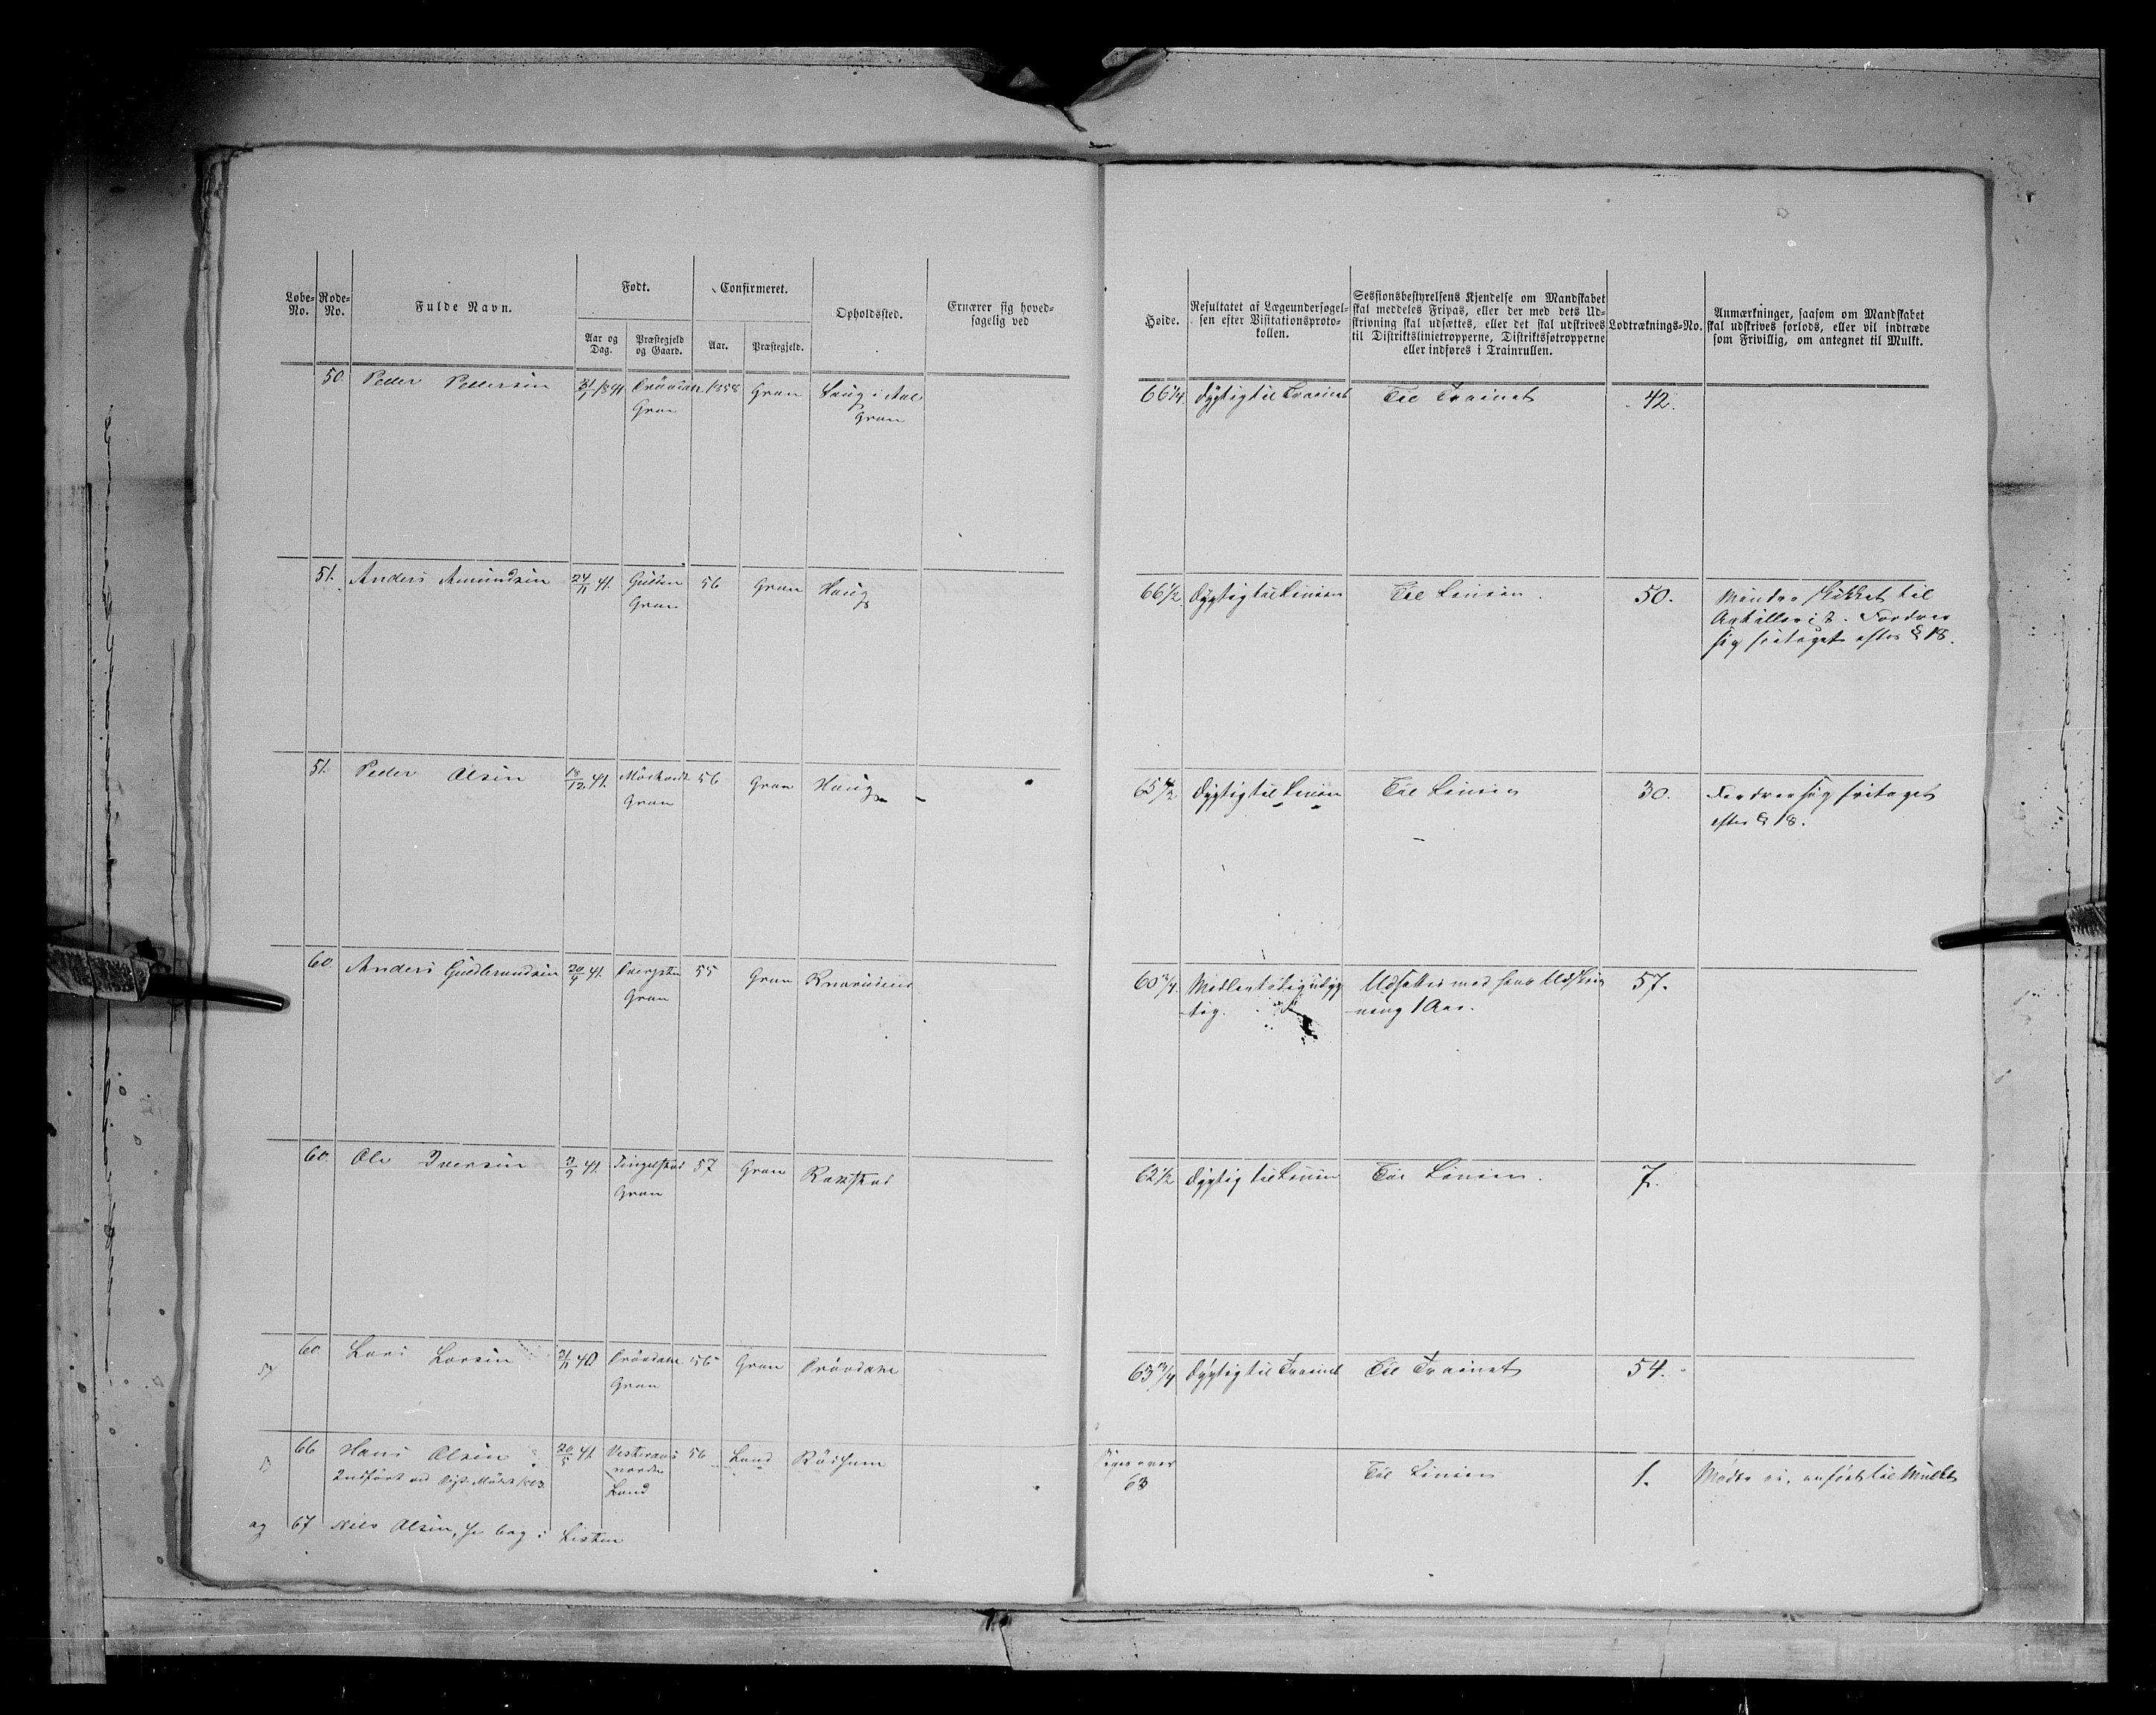 Løbe-No. Rode-No. Fulde Navn. Født. Confirmeret. Opholdssted. Ernærer sig hoved-
sagelig ved
Aar og Dag. Præstegjeld og Gaard. Aar. Præstegjeld.
Høide. Resultatet af Lægeundersøgel-
sen efter Visitationsproto-
kollen.
Sessionsbestyrelsens Kjendelse om Mandskabet
skal meddeles Fripas, eller der med dets Ud-
skrivning skal udsættes, eller det skal udskrives
til Distriktslinietropperne, Distriktsfotropperne
eller indføres i Trainrullen.
Lodtræknings-No.
Anmærkninger, saasom om Mandskabet
skal udskrives forlods, eller vil indtræde
som Frivillig, om antegnet til Mulkt.
50. Peder Pedersen 31/1 1841 1858 Gran Haug i Aal
Gran Gran
66 1/4 Dygtig til Trainet Til Trainet 42.
51. Anders Amundsen 24/11 41. Gulden 56 Gran Haug
Gran
66 1/2 Dygtig til Linien Til Linien. 50. Mindre skikket til
Artillerist. Fordrer
sig fritaget efter § 18.
51. Peder Olsen 18/12 41. 56 Gran Haug
Gran
65 1/2 Dygtig til Linien Til Linien 30. Fordrer sig fritaget
efter § 18.
60. Anders Gudbrandsen 20/9 41. 55 Gran
Gran
60 3/4. Midlertidig udyg- Udsættes med hans Udskriv-
tig. ning 1 Aar. 57.
60. Ole Iversen 41. Tingelstad 57 Gran
Gran
62 1/2 Dygtig til Linien Til Linien. 7.
60 Lars Larsen 40 56 Gran
Gran
63 3/4 Dygtig til Trainet Til Trainet 54.
66 Hans Olsen 20/5 41. 56 Land
Indført ved nordre
Land
Siges over
63
Til Linien 1. Møder ei, anført til Mulkt
og 67 Nils Olsen, se bag i Listen